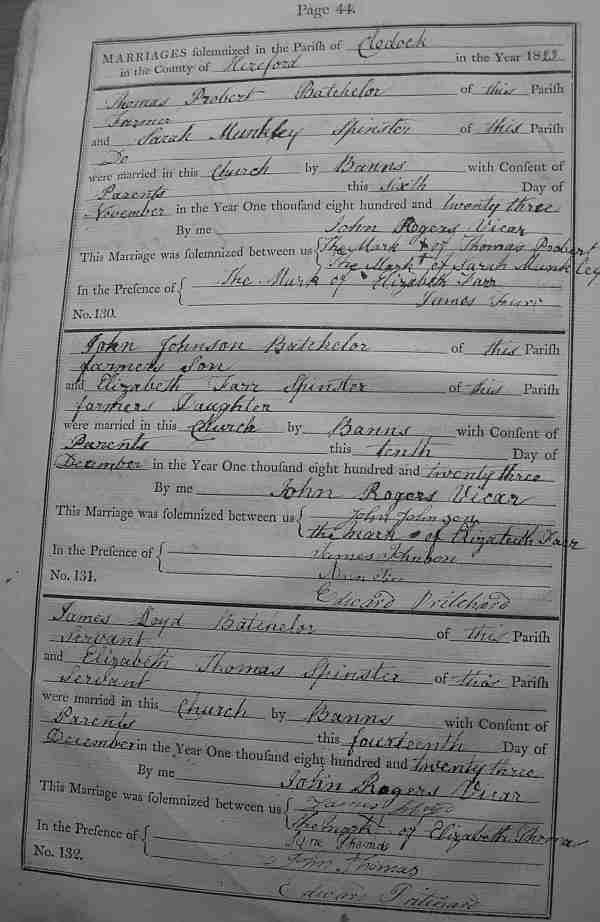 Page 44.
MARRIAGES solemnized in the Parish of Clodock
in the County of Hereford in the Year 1823
Thomas Probert Batchelor of this Parish
Farmer
and Sarah Munkley Spinster of this Parish
Do
were married in this Church by Banns with Consent of
Parents this Sixth Day of
November in the Year One thousand eight hundred and twenty three
By me John Rogers Vicar
This Marriage was solemnized between us { The Mark + of Thomas Probert
The Mark + of Sarah Munkley
In the Presence of { The Mark of Elizabeth Farr
James
No. 130.
John Johnson Batchelor of this Parish
farmers Son
and Elizabeth Farr Spinster of this Parish
farmers Daughter
were married in this Church by Banns with Consent of
Parents this tenth Day of
December in the Year One thousand eight hundred and twenty three
By me John Rogers Vicar
This Marriage was solemnized between us { John Johnson
the mark of Elizabeth Farr
In the Presence of { James Johnson
Ann
No. 131. Edward Pritchard
James Loyd Batchelor of this Parish
Servant
and Elizabeth Thomas Spinster of this Parish
Servant
were married in this Church by Banns with Consent of
Parents this fourteenth Day of
December in the Year One thousand eight hundred and twenty three
By me John Rogers Vicar
This Marriage was solemnized between us { James
The mark + of Elizabeth Thomas
In the Presence of { Jane Thomas
John Thomas
No. 132. Edward Pritchard